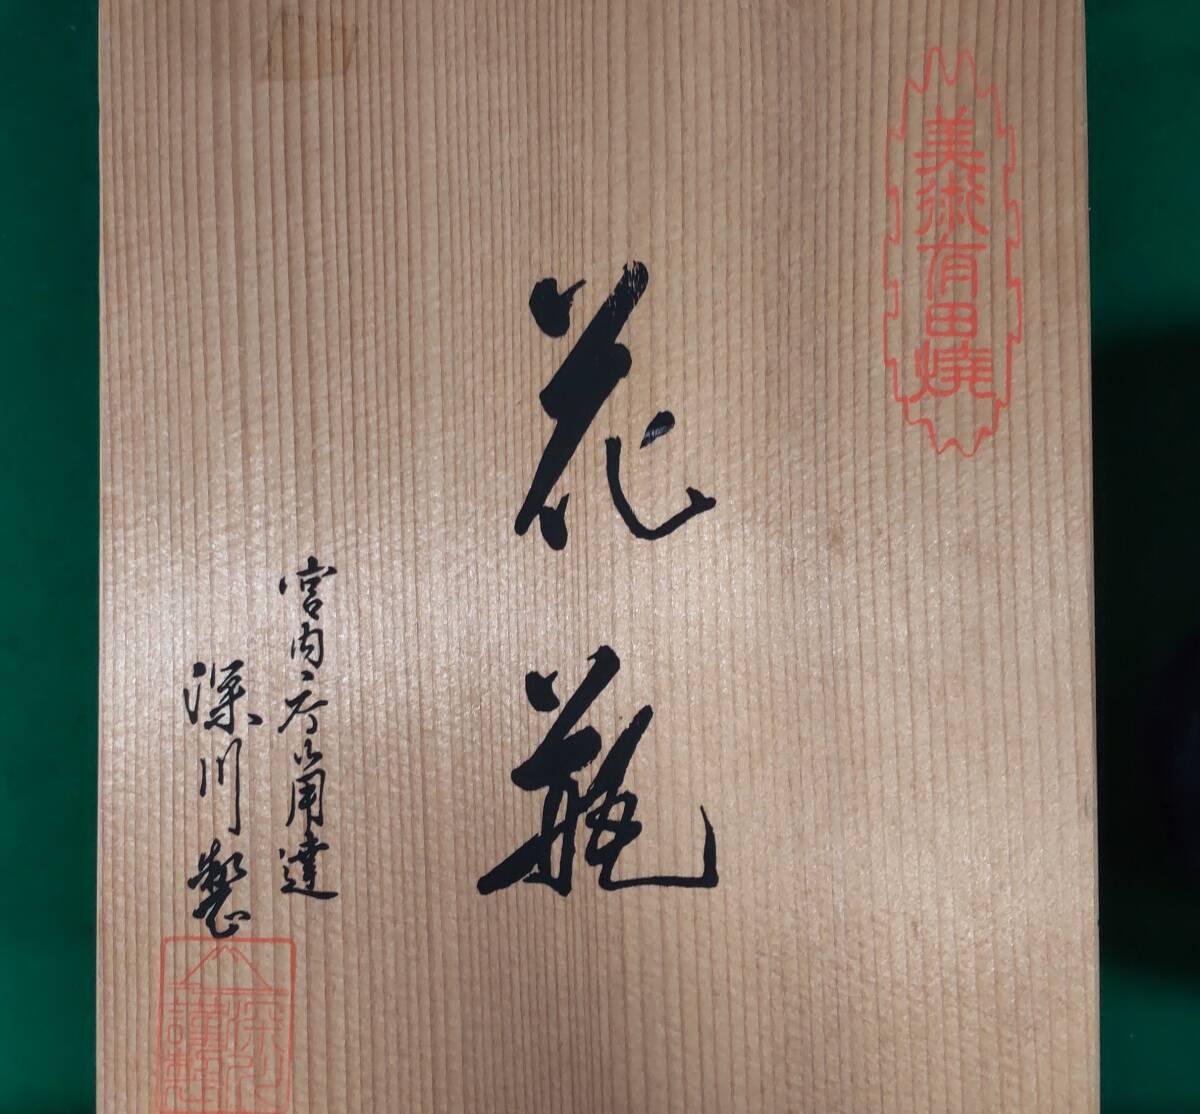 美術有田焼
花瓶
宮内庁御用達
深川製
深川
謹製